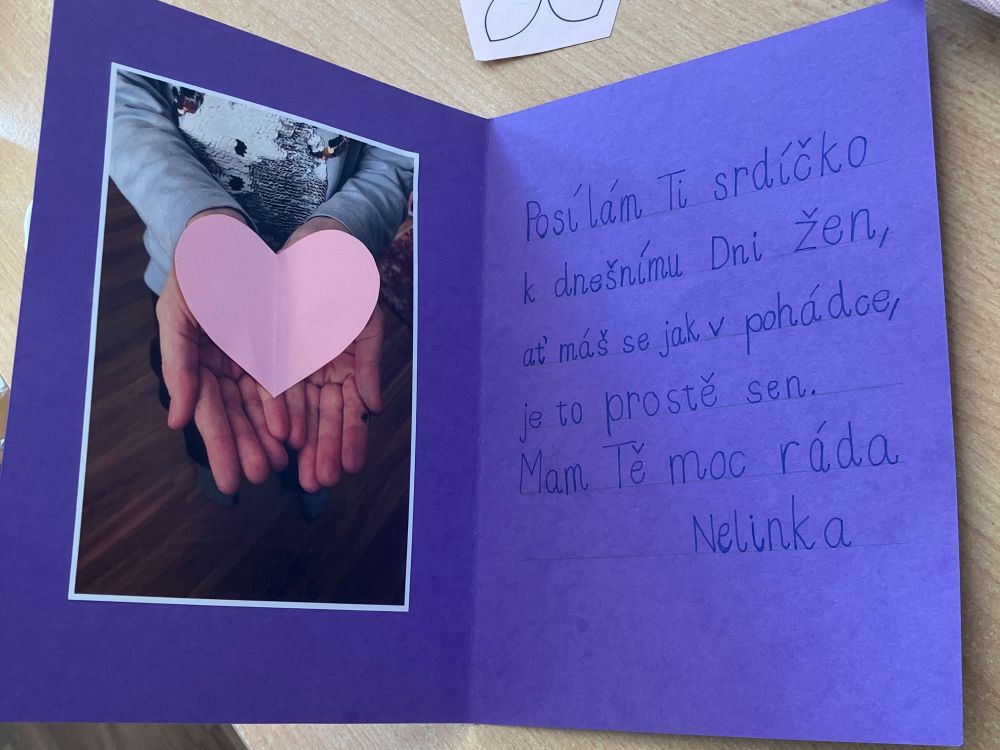 Posílám Ti srdíčko
k dnešnímu Dni žen,
ať máš se jak v pohádce,
je to prostě sen.
Mam Tě moc ráda
Nelinka